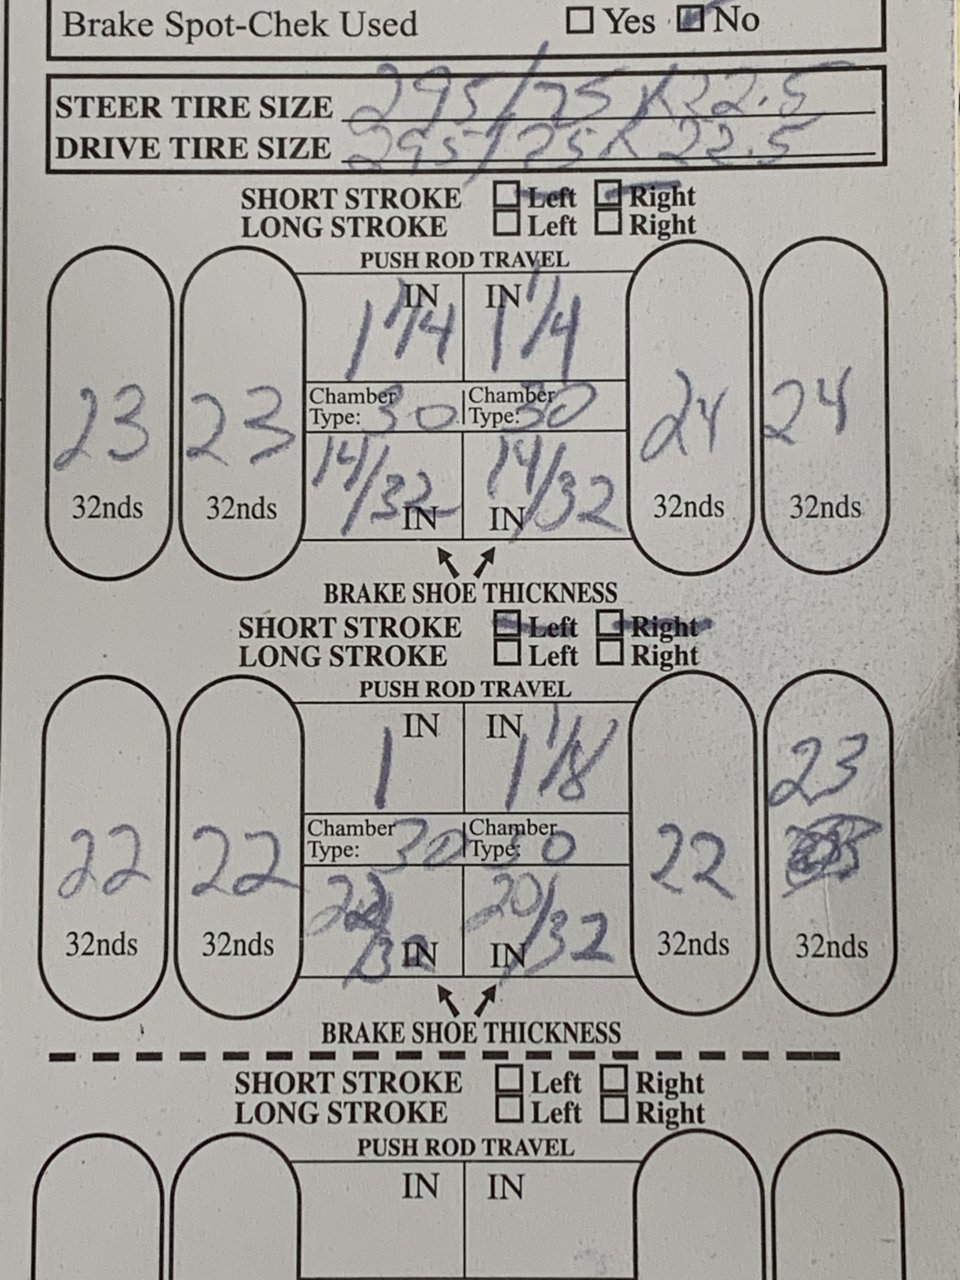 Brake Spot-Chek Used □ Yes ☑ No
STEER TIRE SIZE 295/75 X 22.5
DRIVE TIRE SIZE 295/75 X 22.5
SHORT STROKE Left Right
LONG STROKE Left Right
PUSH ROD TRAVEL
IN IN
1 1/4 1 1/4
Chamber Chamber
Type: 30 Type: 30
23 23 24 24
14/32 14/32
32nds 32nds IN IN 32nds 32nds
BRAKE SHOE THICKNESS
SHORT STROKE Left Right
LONG STROKE Left Right
PUSH ROD TRAVEL
IN IN
1 1 1/8 23
Chamber Chamber
Type: 30 Type: 30
22 22 22
20/32
32nds 32nds IN IN 32nds 32nds
BRAKE SHOE THICKNESS
SHORT STROKE Left Right
LONG STROKE Left Right
PUSH ROD TRAVEL
IN IN